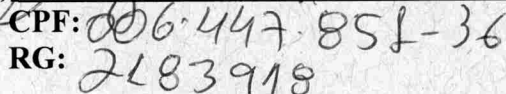 CPF: 006.447.851-36
RG: 2183918